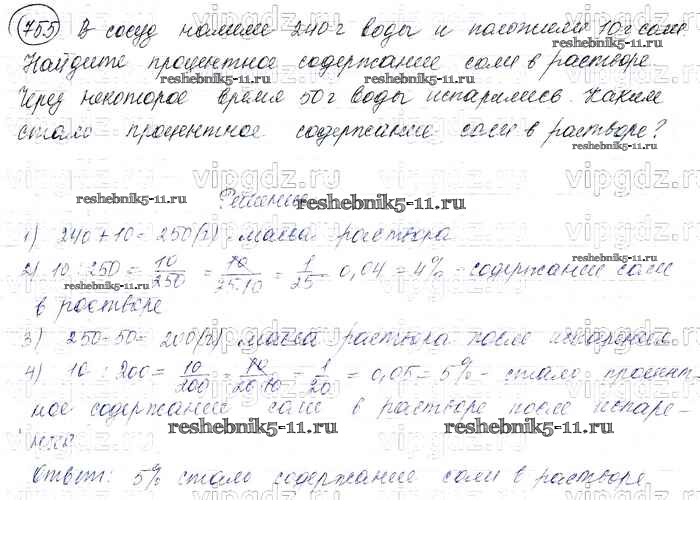 755) В сосуд налили 240 г воды и положили 10 г соли.
Найдите процентное содержание соли в растворе.
Через некоторое время 50 г воды испарились. Каким
стало процентное содержание соли в растворе?
reshebnik5-11.ru
reshebnik5-11.ru
reshebnik5-11.ru
vipgdz.ru vipgdz.ru vipgdz.ru
reshebnik5-11.ru
reshebnik5-11.ru
Решение
1) 240 + 10 = 250 (г) - масса раствора
2) 10 : 250 = 10/250 = 10/25·10 = 1/25 = 0,04 = 4% - содержание соли
reshebnik5-11.ru
в растворе
vipgdz.ru vipgdz.ru vipgdz.ru
3) 250 - 50 = 200 (г) - масса раствора после испарения
4) 10 : 200 = 10/200 = 10/20·10 = 1/20 = 0,05 = 5% - стало процент-
ное содержание соли в растворе после испаре-
reshebnik5-11.ru
reshebnik5-11.ru
ния
vipgdz.ru vipgdz.ru vipgdz.ru
Ответ: 5% стало содержание соли в растворе